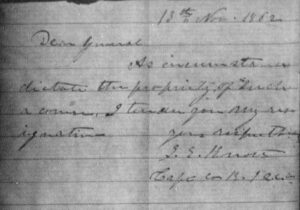 13th Nov. 1862
Dear General
As circumstan
dictate the propriety of such
a course, I tender you my res
ignation
Your respectfu
Capt Co